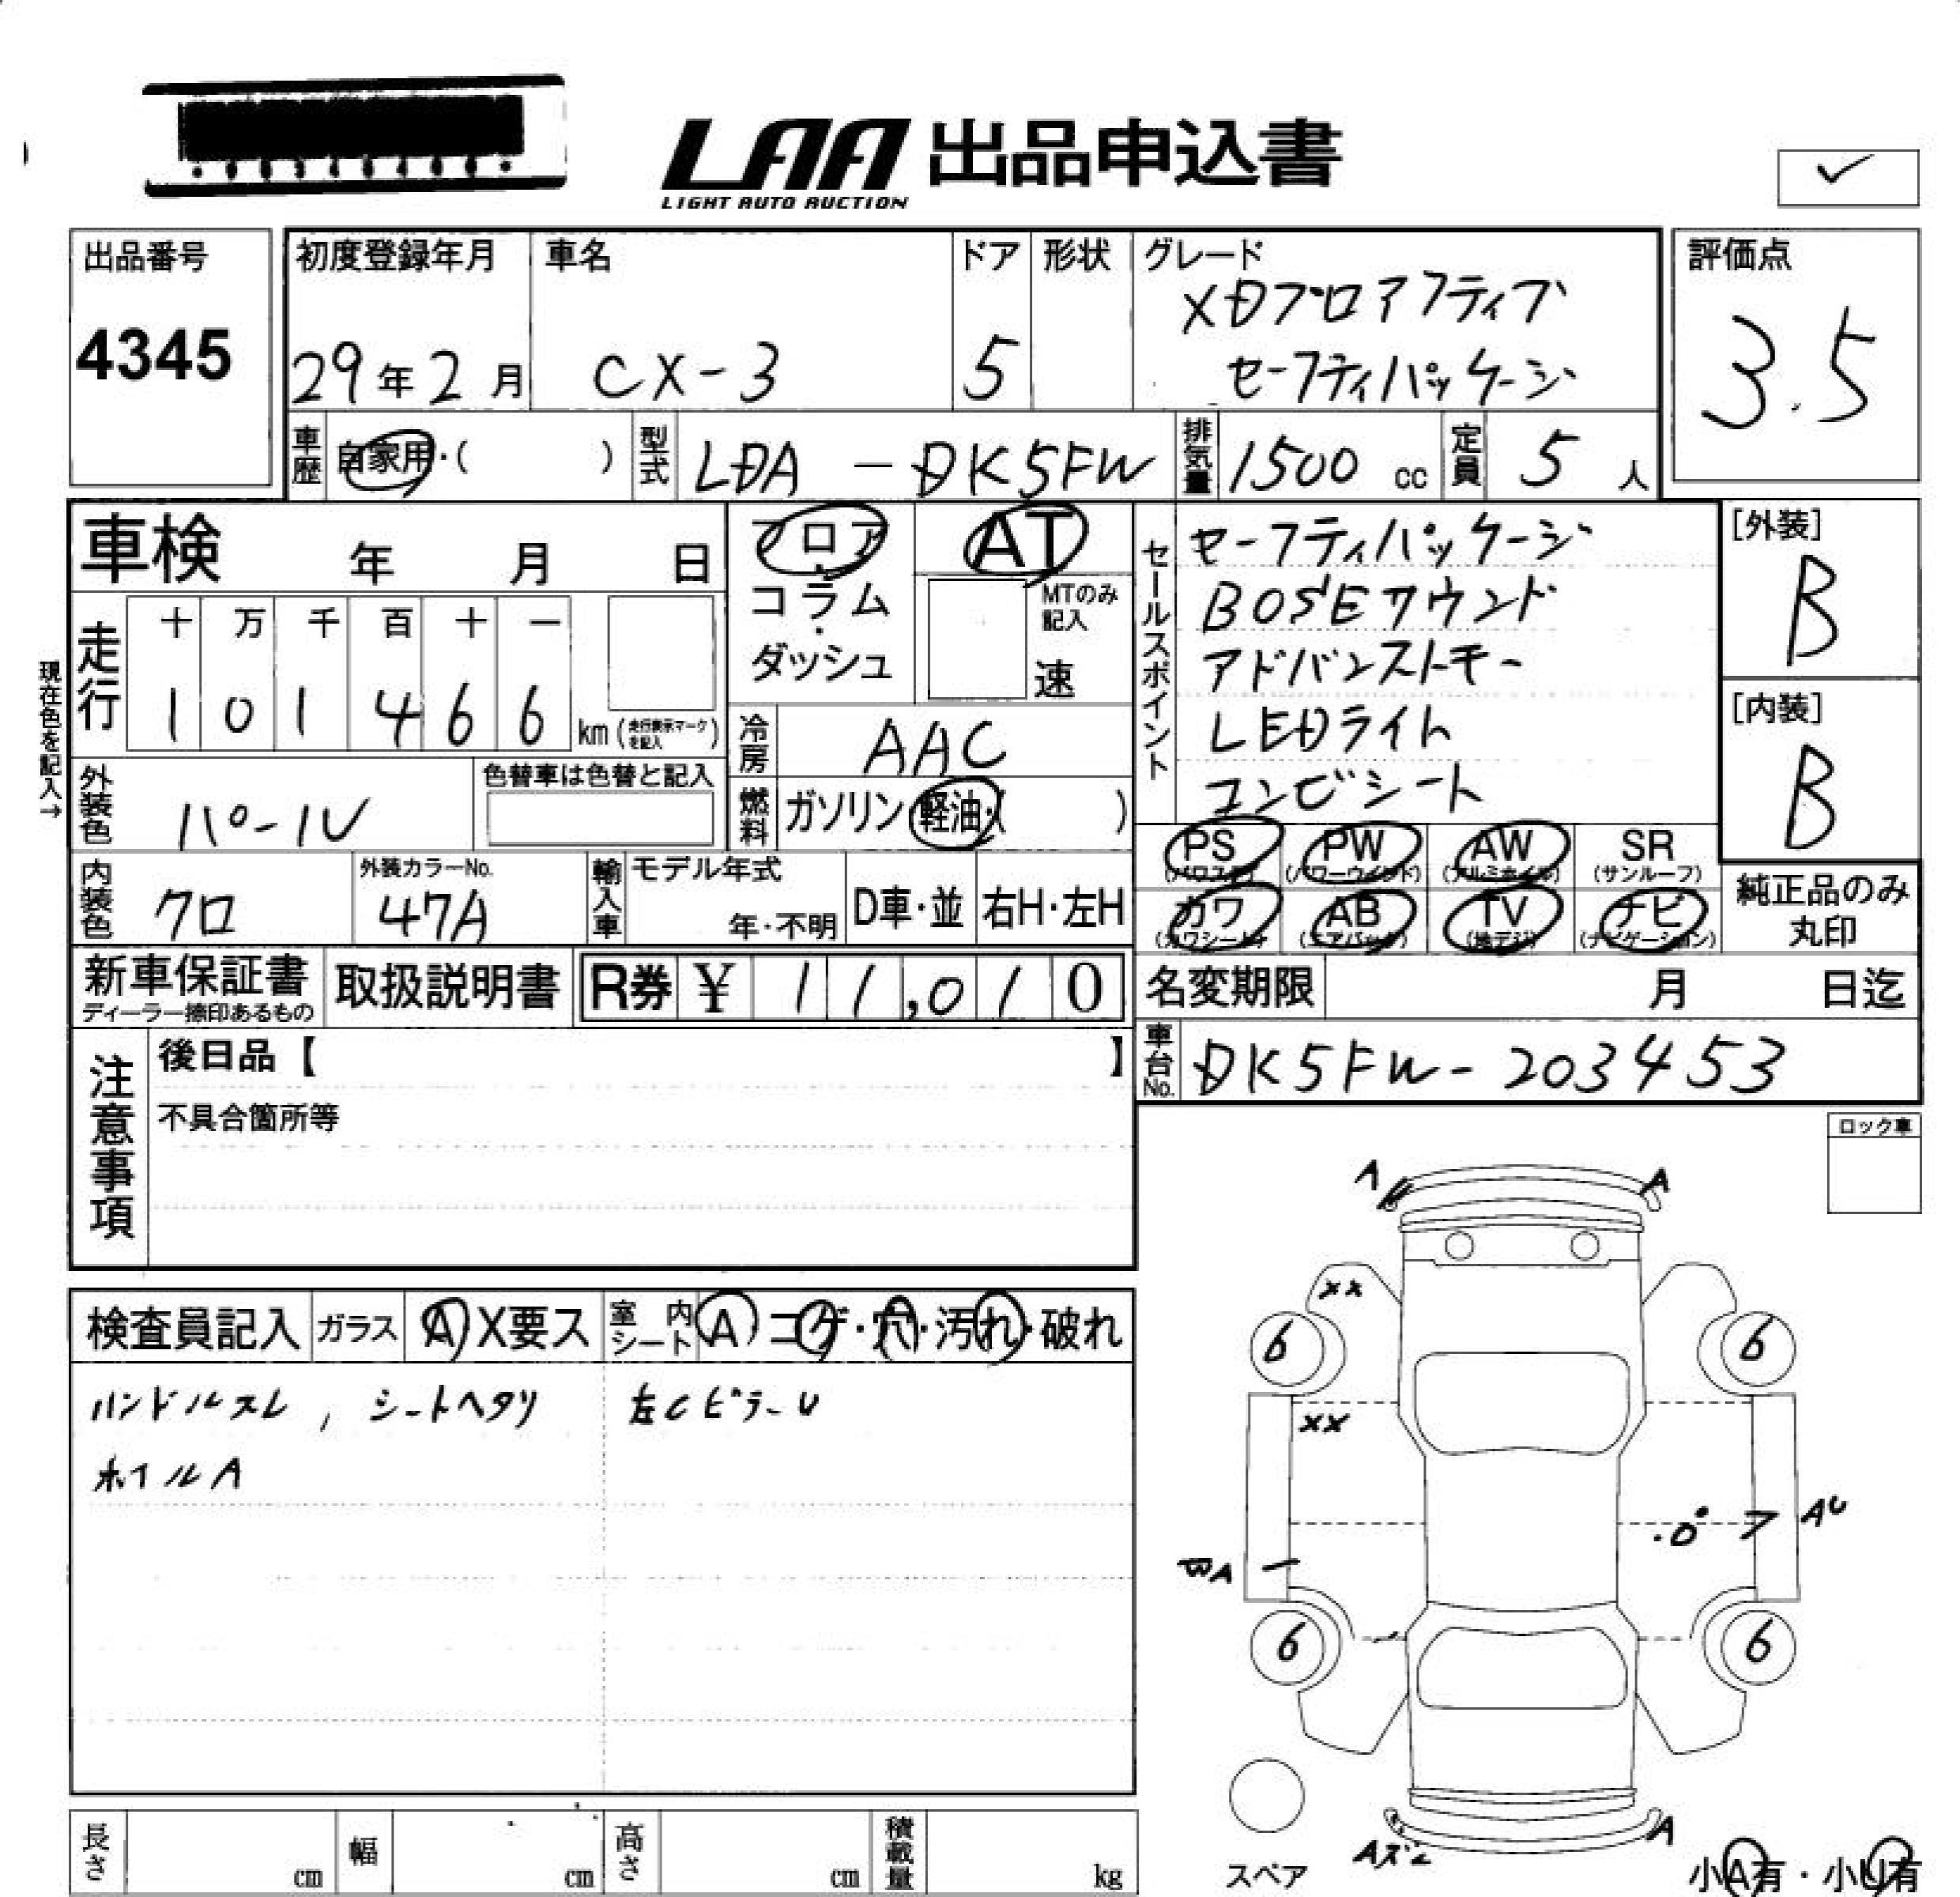 LAA 出品申込書
LIGHT AUTO AUCTION
✓
出品番号
4345
初度登録年月
29年2月
車名
CX-3
ドア
5
形状
グレード
XDプロアクティブ
セーフティパッケージ
評価点
3.5
車歴
自家用・( )
型式
LDA - DK5FW
排気量
1500 cc
定員
5 人
車検 年 月 日
フロア
コラム
ダッシュ
AT
MTのみ記入
速
走行
十 万 千 百 十 一
1 0 1 4 6 6 km (走行表示マークを記入)
現在色を記入→
外装色
パール
色替車は色替と記入
冷房
AAC
燃料
ガソリン・軽油・( )
セールスポイント
セーフティパッケージ
BOSEサウンド
アドバンストキー
LEDライト
コンビシート
[外装]
B
[内装]
B
PS (パワステ)
PW (パワーウインド)
AW (アルミホイル)
SR (サンルーフ)
カワ (カワシート)
AB (エアバック)
TV (地デジ)
ナビ (ナビゲーション)
純正品のみ
丸印
内装色
クロ
外装カラーNo.
47A
輸入車
モデル年式
年・不明
D車・並
右H・左H
新車保証書
ディーラー捺印あるもの
取扱説明書
R券 ¥ 11,010
名変期限 月 日迄
車台No.
DK5FW-203453
注意事項
後日品【 】
不具合箇所等
ロック車
検査員記入
ガラス
A X要ス
室内シート
A コゲ・穴・汚れ・破れ
ハンドルスレ, シートヘタリ
左CピラーU
ホイルA
A
A
XX
6
6
XX
AU
BA
6
6
A
Aズレ
スペア
小A有・小U有
長さ cm
幅 cm
高さ cm
積載量 kg